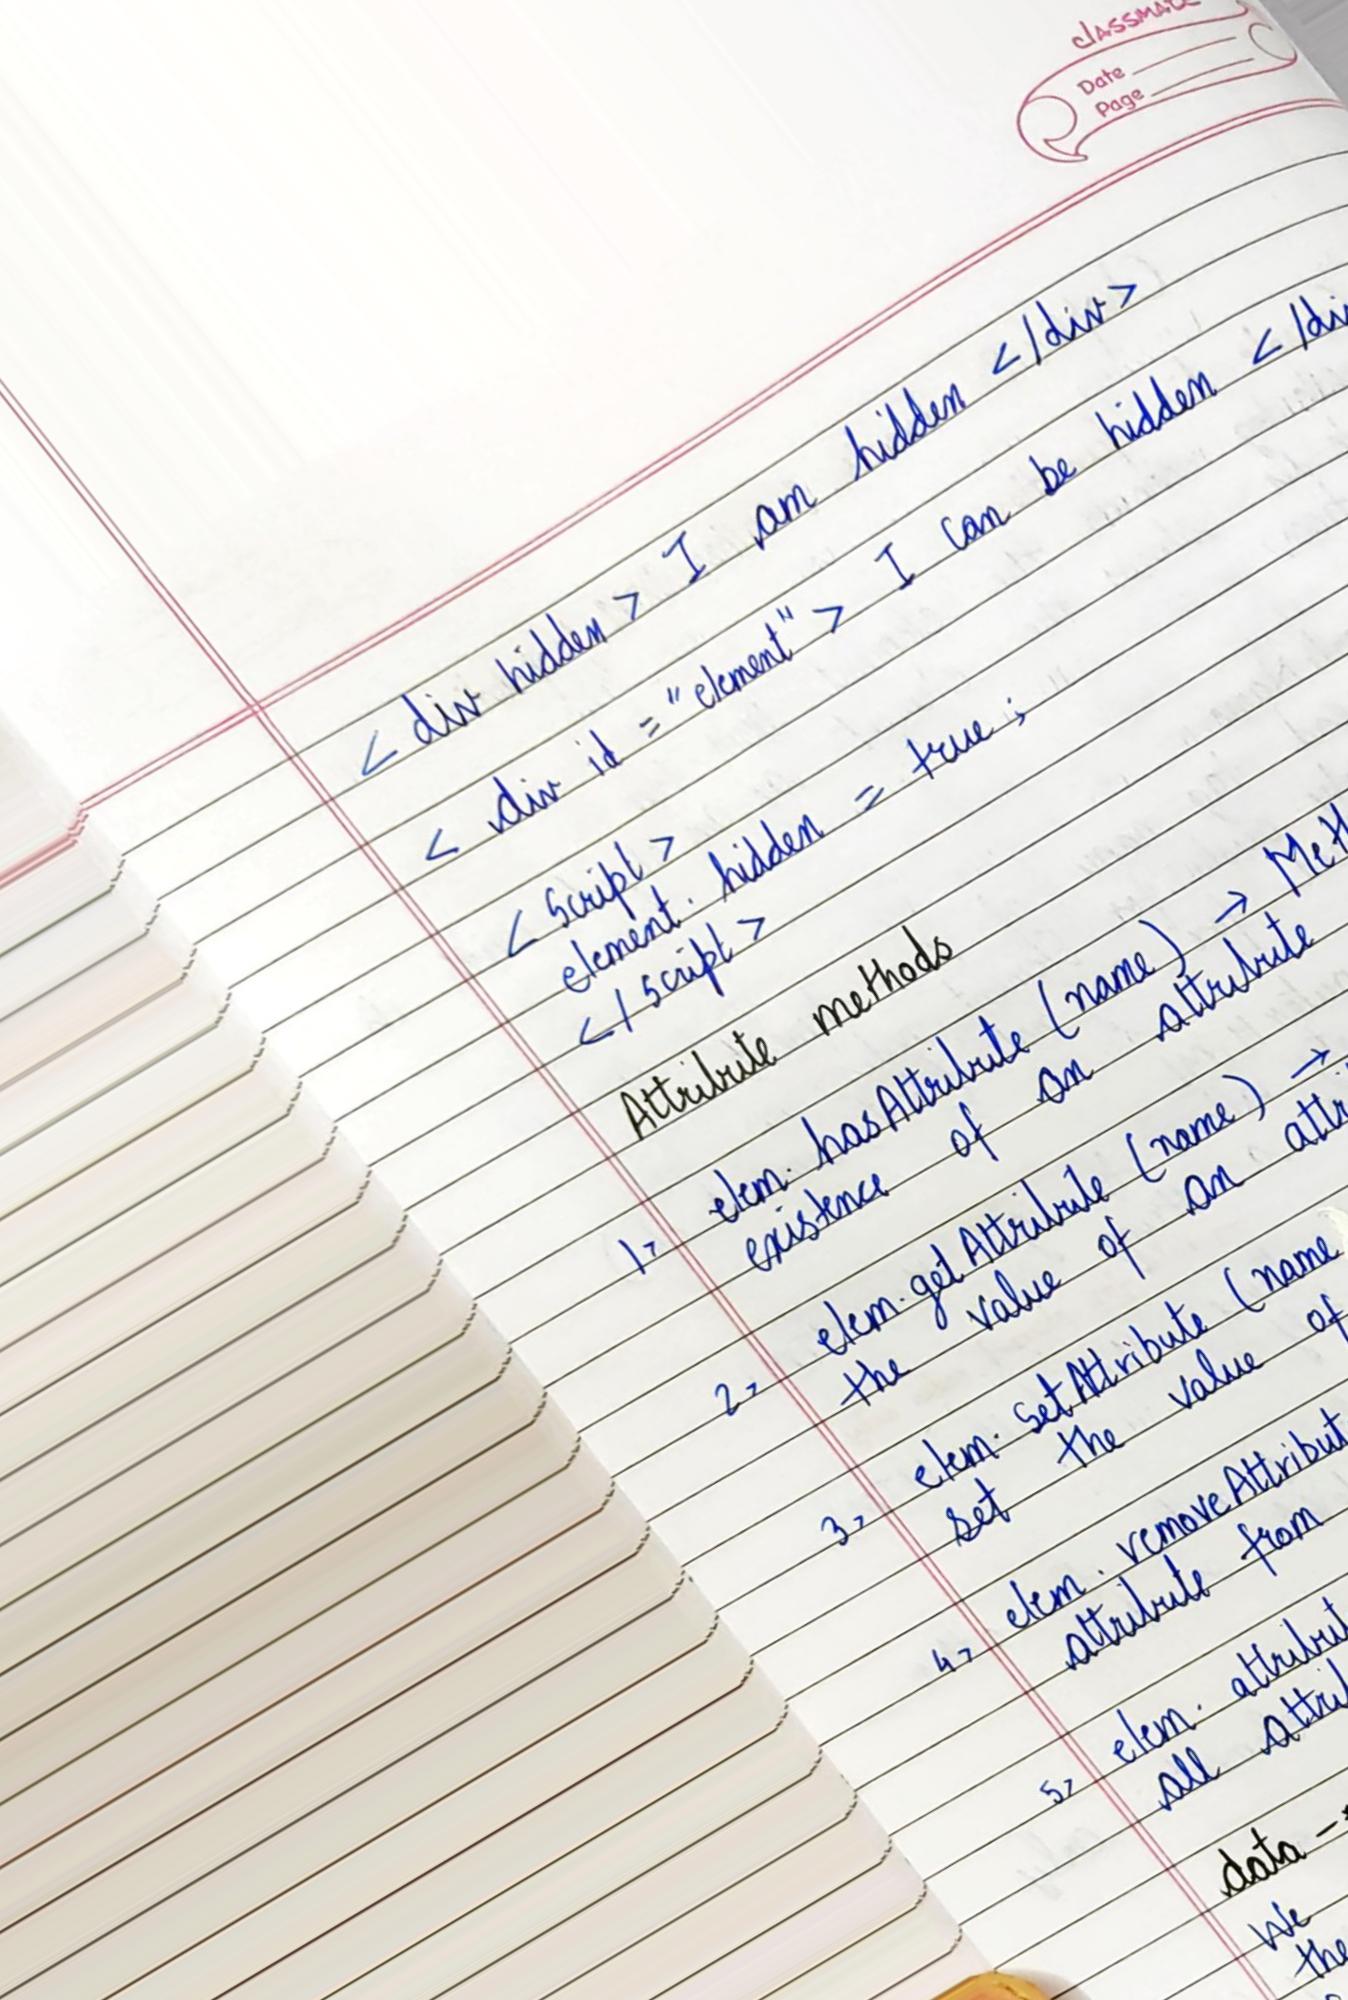 classmate
Date
Page
< div hidden > I am hidden </div>
< div id = "element" > I can be hidden </div
< script >
element. hidden = true ;
</ script >
Attribute methods
1> elem. hasAttribute (name) →
existence of an attribute
2> elem. getAttribute (name) →
the value of an
3> elem. setAttribute (name
set the value of
4> elem. removeAttribut
attribute from
5> elem.
all
data -
We
the